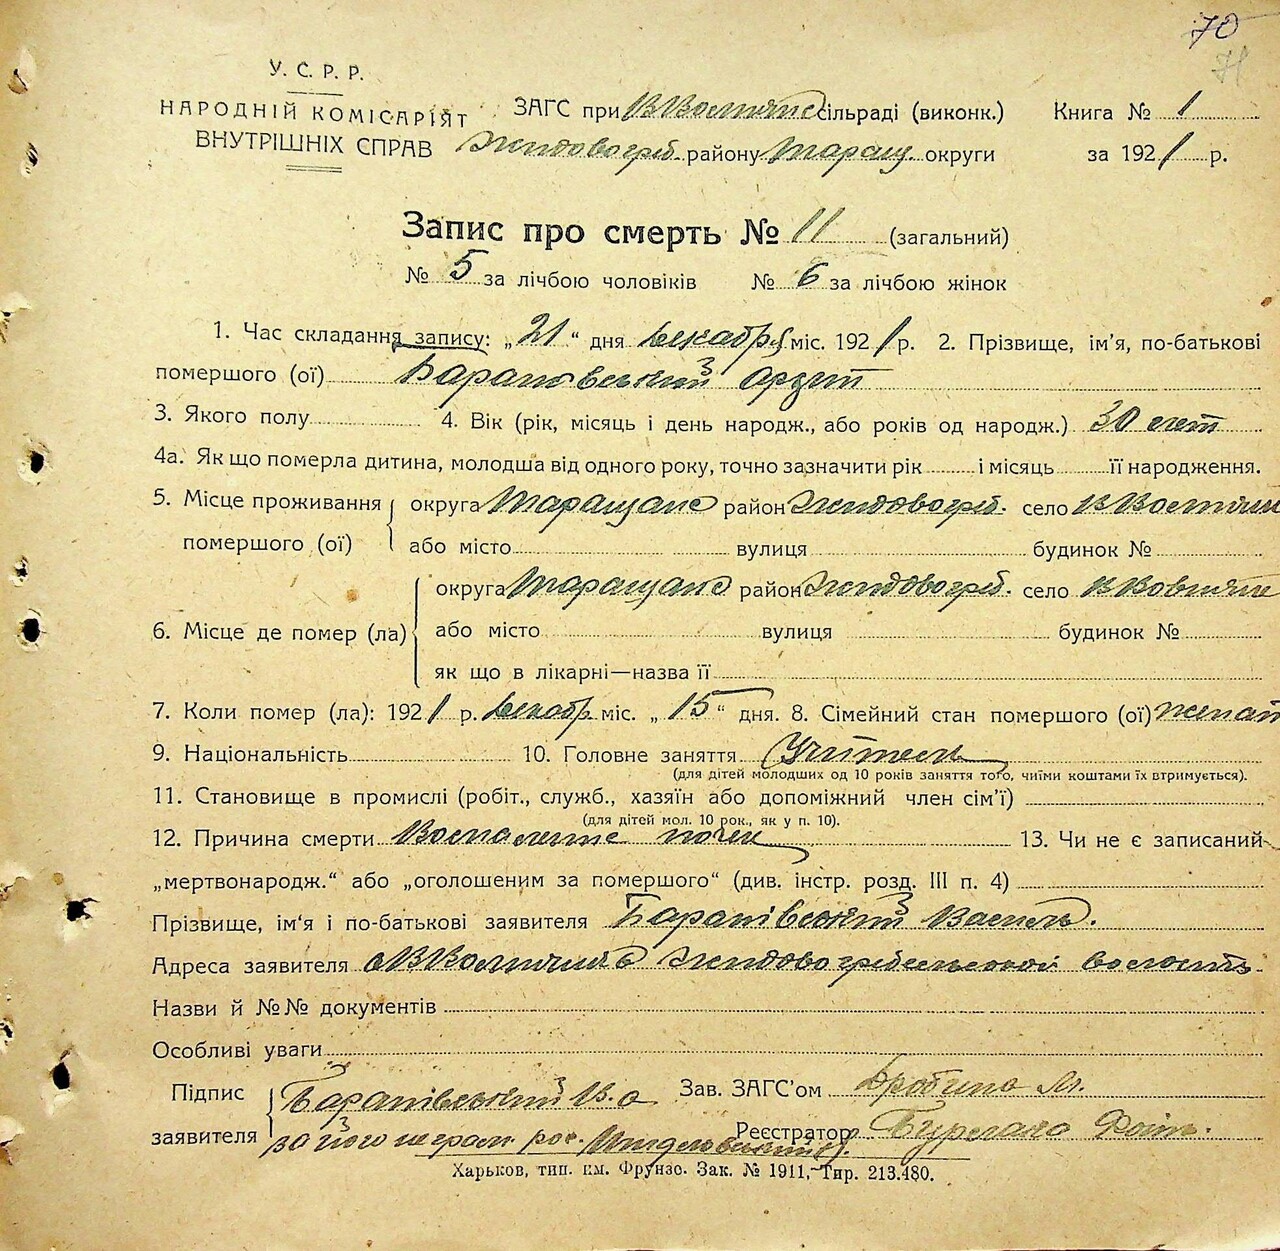 70
71
У. С. Р. Р.
НАРОДНІЙ КОМІСАРІЯТ
ВНУТРІШНІХ СПРАВ
ЗАГС при сільраді (виконк.)
Жидовогреб. району Таращ. округи
Книга № 1
за 1921 р.
Запис про смерть № 11 (загальний)
№ 5 за лічбою чоловіків № 6 за лічбою жінок
1. Час складання запису: „21“ дня Декабря міс. 1921 р. 2. Прізвище, ім'я, по-батькові
помершого (ої)
3. Якого полу 4. Вік (рік, місяць і день народж., або років од народж.) 30 лет
4а. Як що померла дитина, молодша від одного року, точно зазначити рік і місяць її народження.
5. Місце проживання помершого (ої)
округа Таращанс район Жидовогреб. село
або місто вулиця будинок №
6. Місце де помер (ла)
округа Таращанс район Жидовогреб. село
або місто вулиця будинок №
як що в лікарні—назва її
7. Коли помер (ла): 1921 р. Декабр міс. „15“ дня. 8. Сімейний стан помершого (ої) женат
9. Національність 10. Головне заняття Учитель
(для дітей молодших од 10 років заняття того, чиїми коштами їх втримується).
11. Становище в промислі (робіт., служб., хазяїн або допоміжний член сім'ї)
(для дітей мол. 10 рок., як у п. 10).
12. Причина смерти Воспаление почек 13. Чи не є записаний
„мертвонародж.“ або „оголошеним за помершого“ (див. інстр. розд. III п. 4)
Прізвище, ім'я і по-батькові заявителя Василь.
Адреса заявителя Жидовогребельской волости
Назви й №№ документів
Особливі уваги
Підпис заявителя
Зав. ЗАГС'ом М.
за його неграм. рос.
Реєстратор
Харьков, тип. им. Фрунзе. Зак. № 1911, Тир. 213.480.